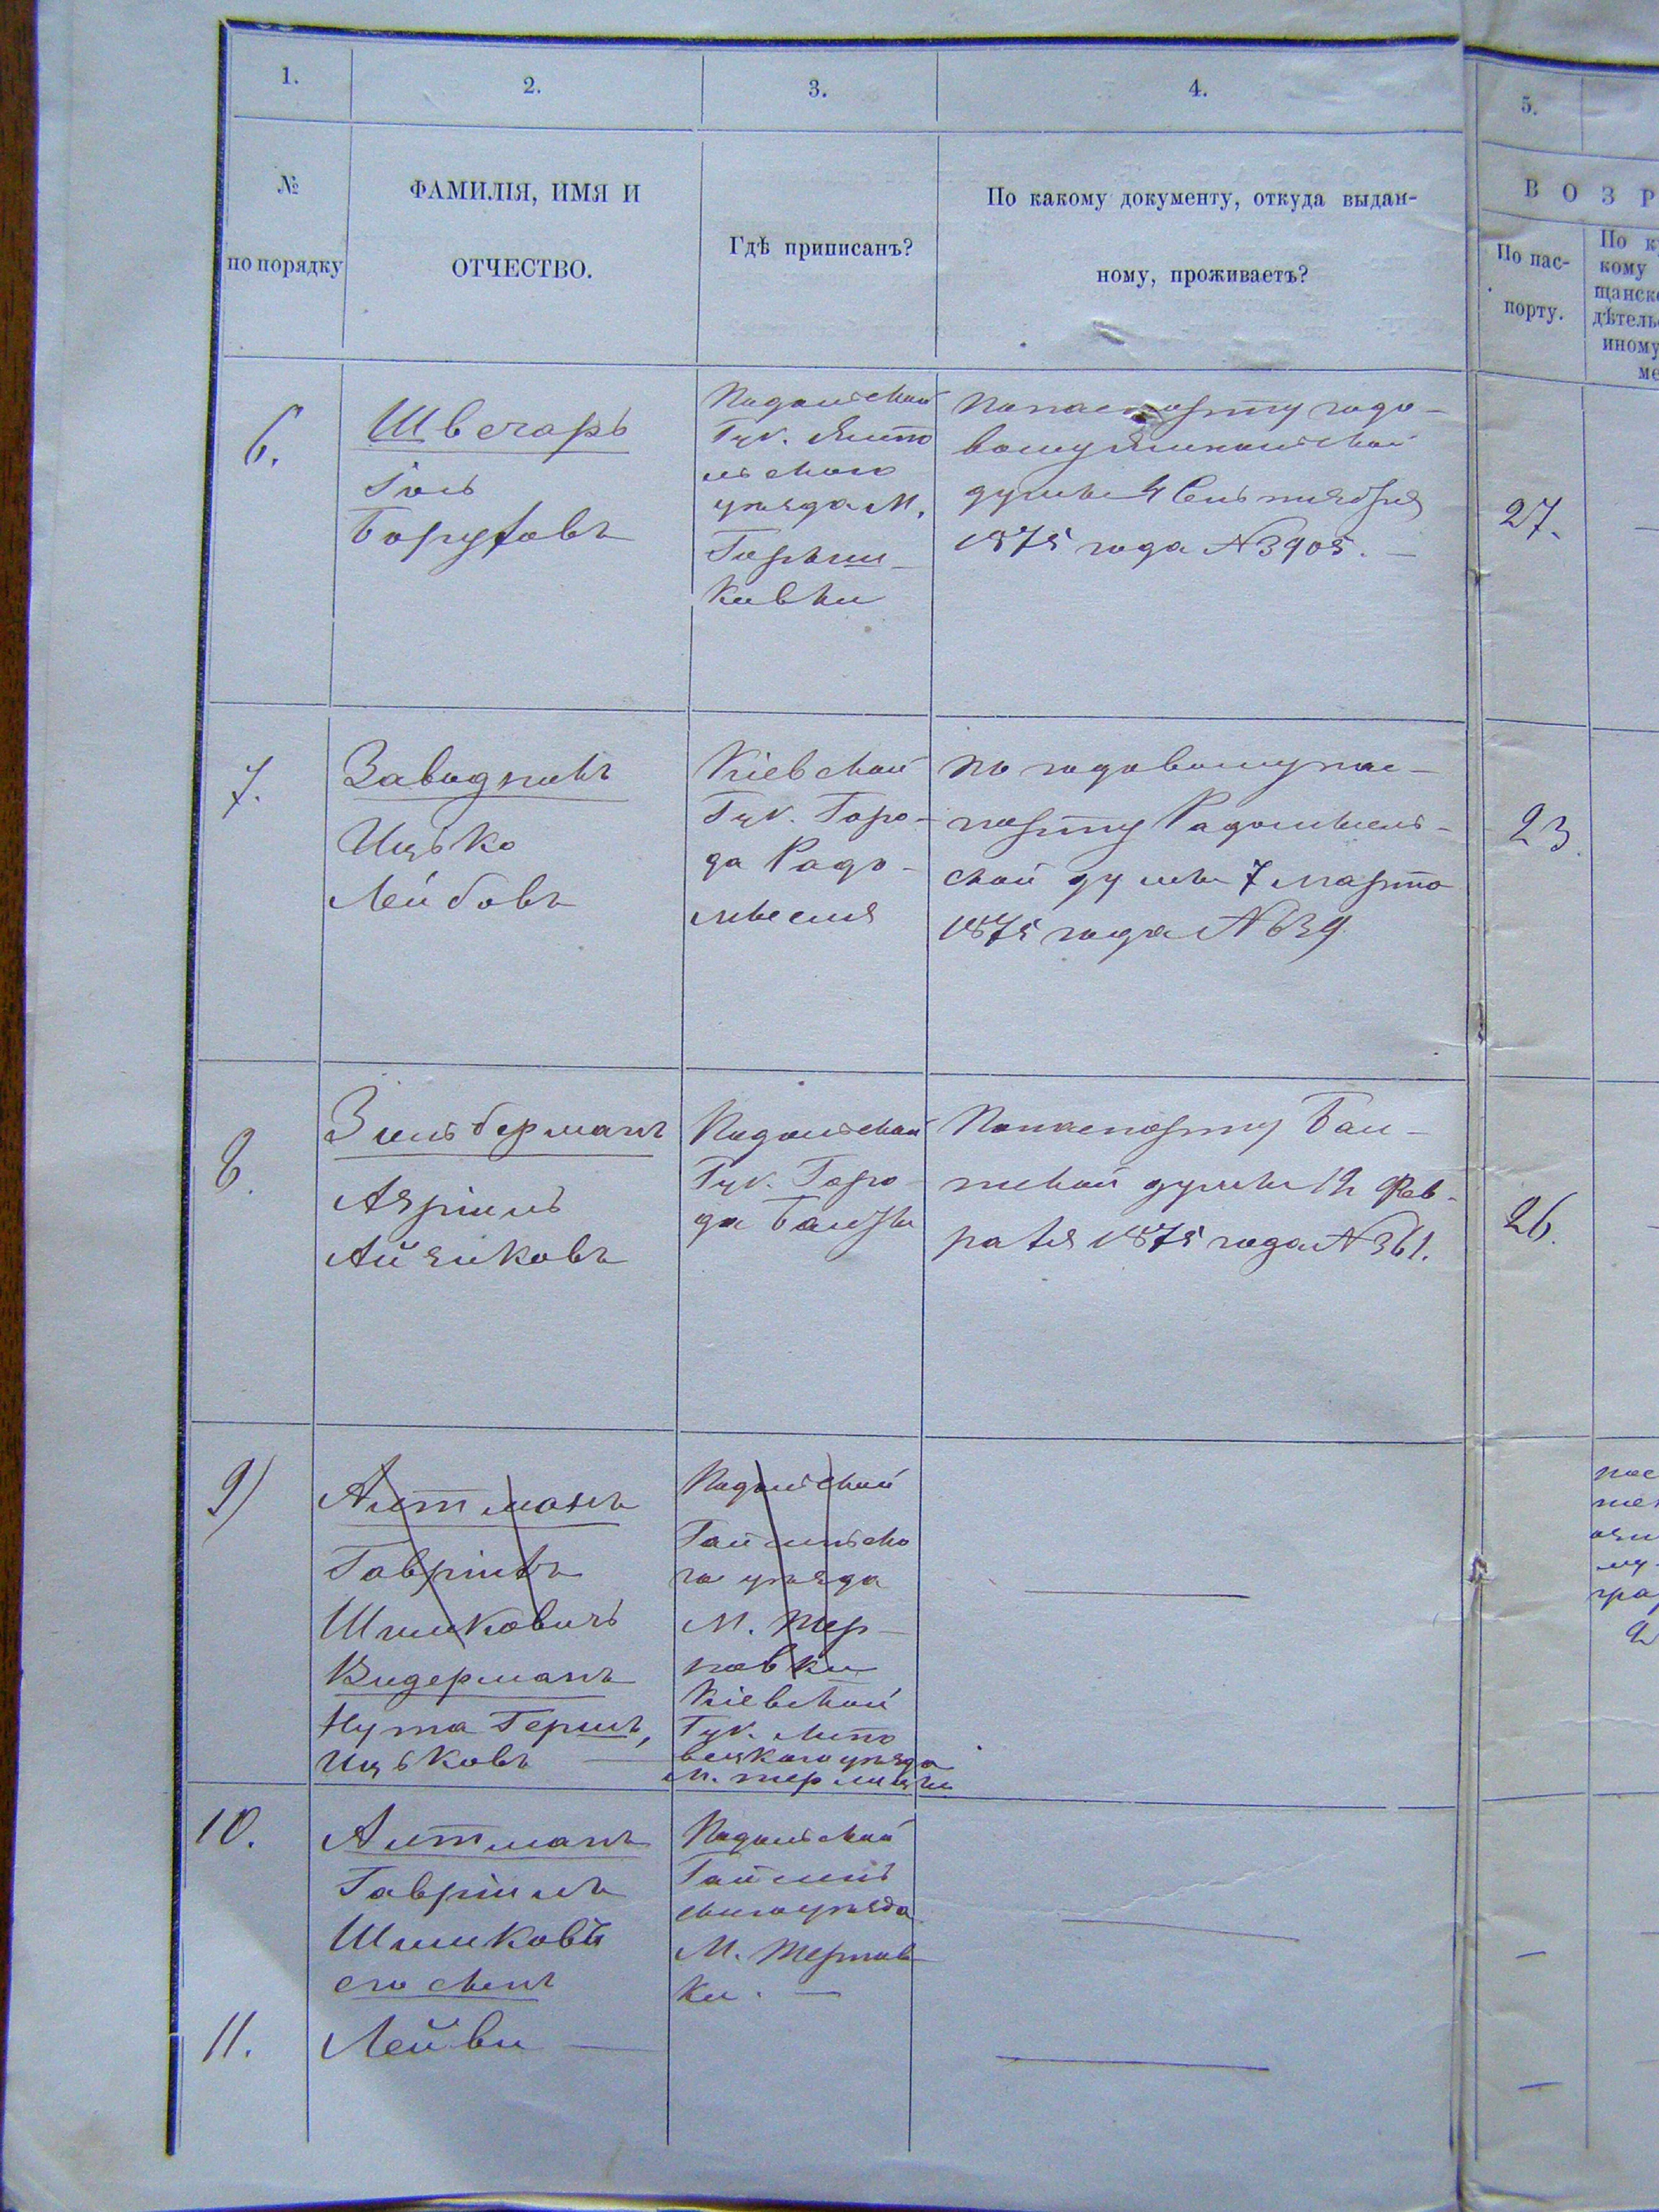 1.
2.
3.
4.
5.
№
по порядку
ФАМИЛІЯ, ИМЯ И
ОТЧЕСТВО.
Гдѣ приписанъ?
По какому документу, откуда выдан-
ному, проживаетъ?
ВОЗР
По пас-
порту.
По к
кому
щанск
дѣтель
иному
ме
6.
Швечаръ
Іоль
Боруховъ
Подольской
Губ. Ямпо
льскаго
уѣзда М.
Горыш-
ковки
По паспорту годо-
вому Ямпольской
думы 4 Сентября
1875 года № 3905. —
27.
7.
Заводникъ
Ицько
Лейбовъ
Кіевской
Губ. Горо-
да Радо-
мысля
По годовому пас-
порту Радомысль-
ской думы 7 марта
1875 года № 639
23.
8.
Зильберманъ
Азріиль
Айзиковъ
Подольской
Губ. Горо-
да Балты
По паспорту Бал-
тской думы 12 Фев-
раля 1875 года № 361.
26.
9)
Алтманъ
Гавріилъ
Шмиковичъ
Видерманъ
Нута Гершъ,
Ицьковъ —
Подольской
Гайсинско
го уѣзда
М. Тер-
новки
Кіевской
Губ. Липо
вецкаго уѣзда
М. Терлицы
10.
Алтманъ
Гавріилъ
Шмиковъ
его сынъ
Подольской
Гайсин
скаго уѣзда
М. Тернов
ки. —
11.
Лейви —